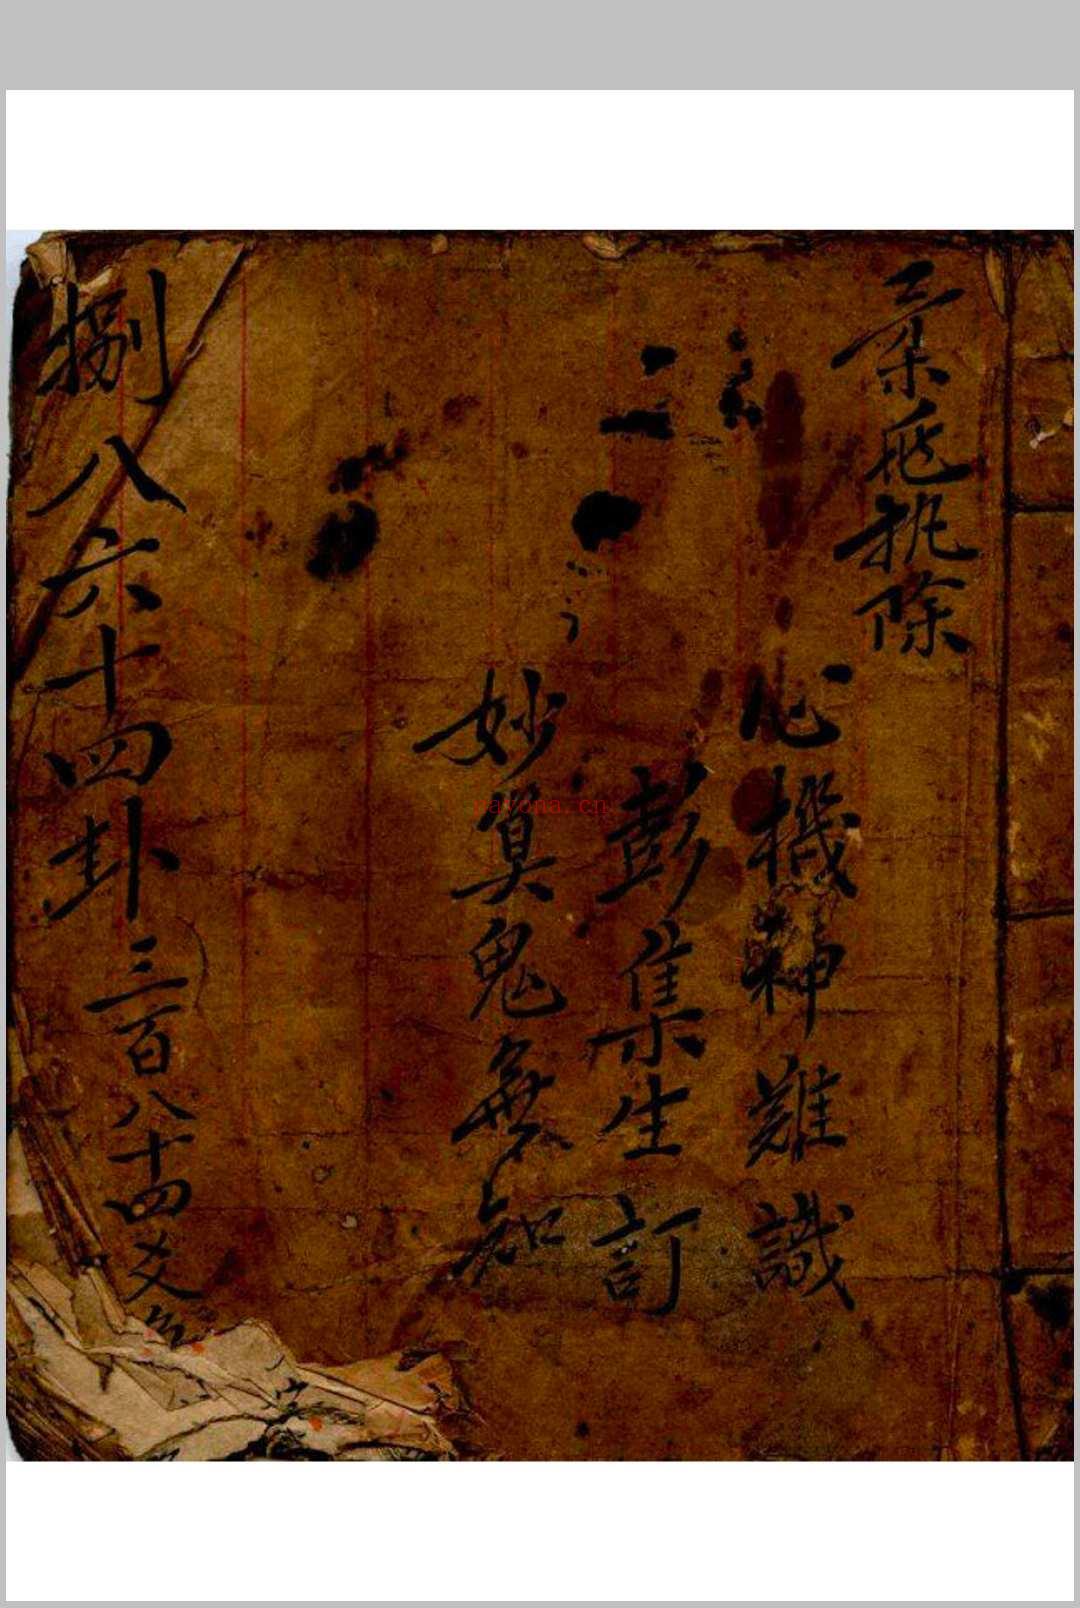 三 执除
心機神難識
彭集生訂
妙算鬼無知
捌八六十四卦三百八十四爻
sayona.cn